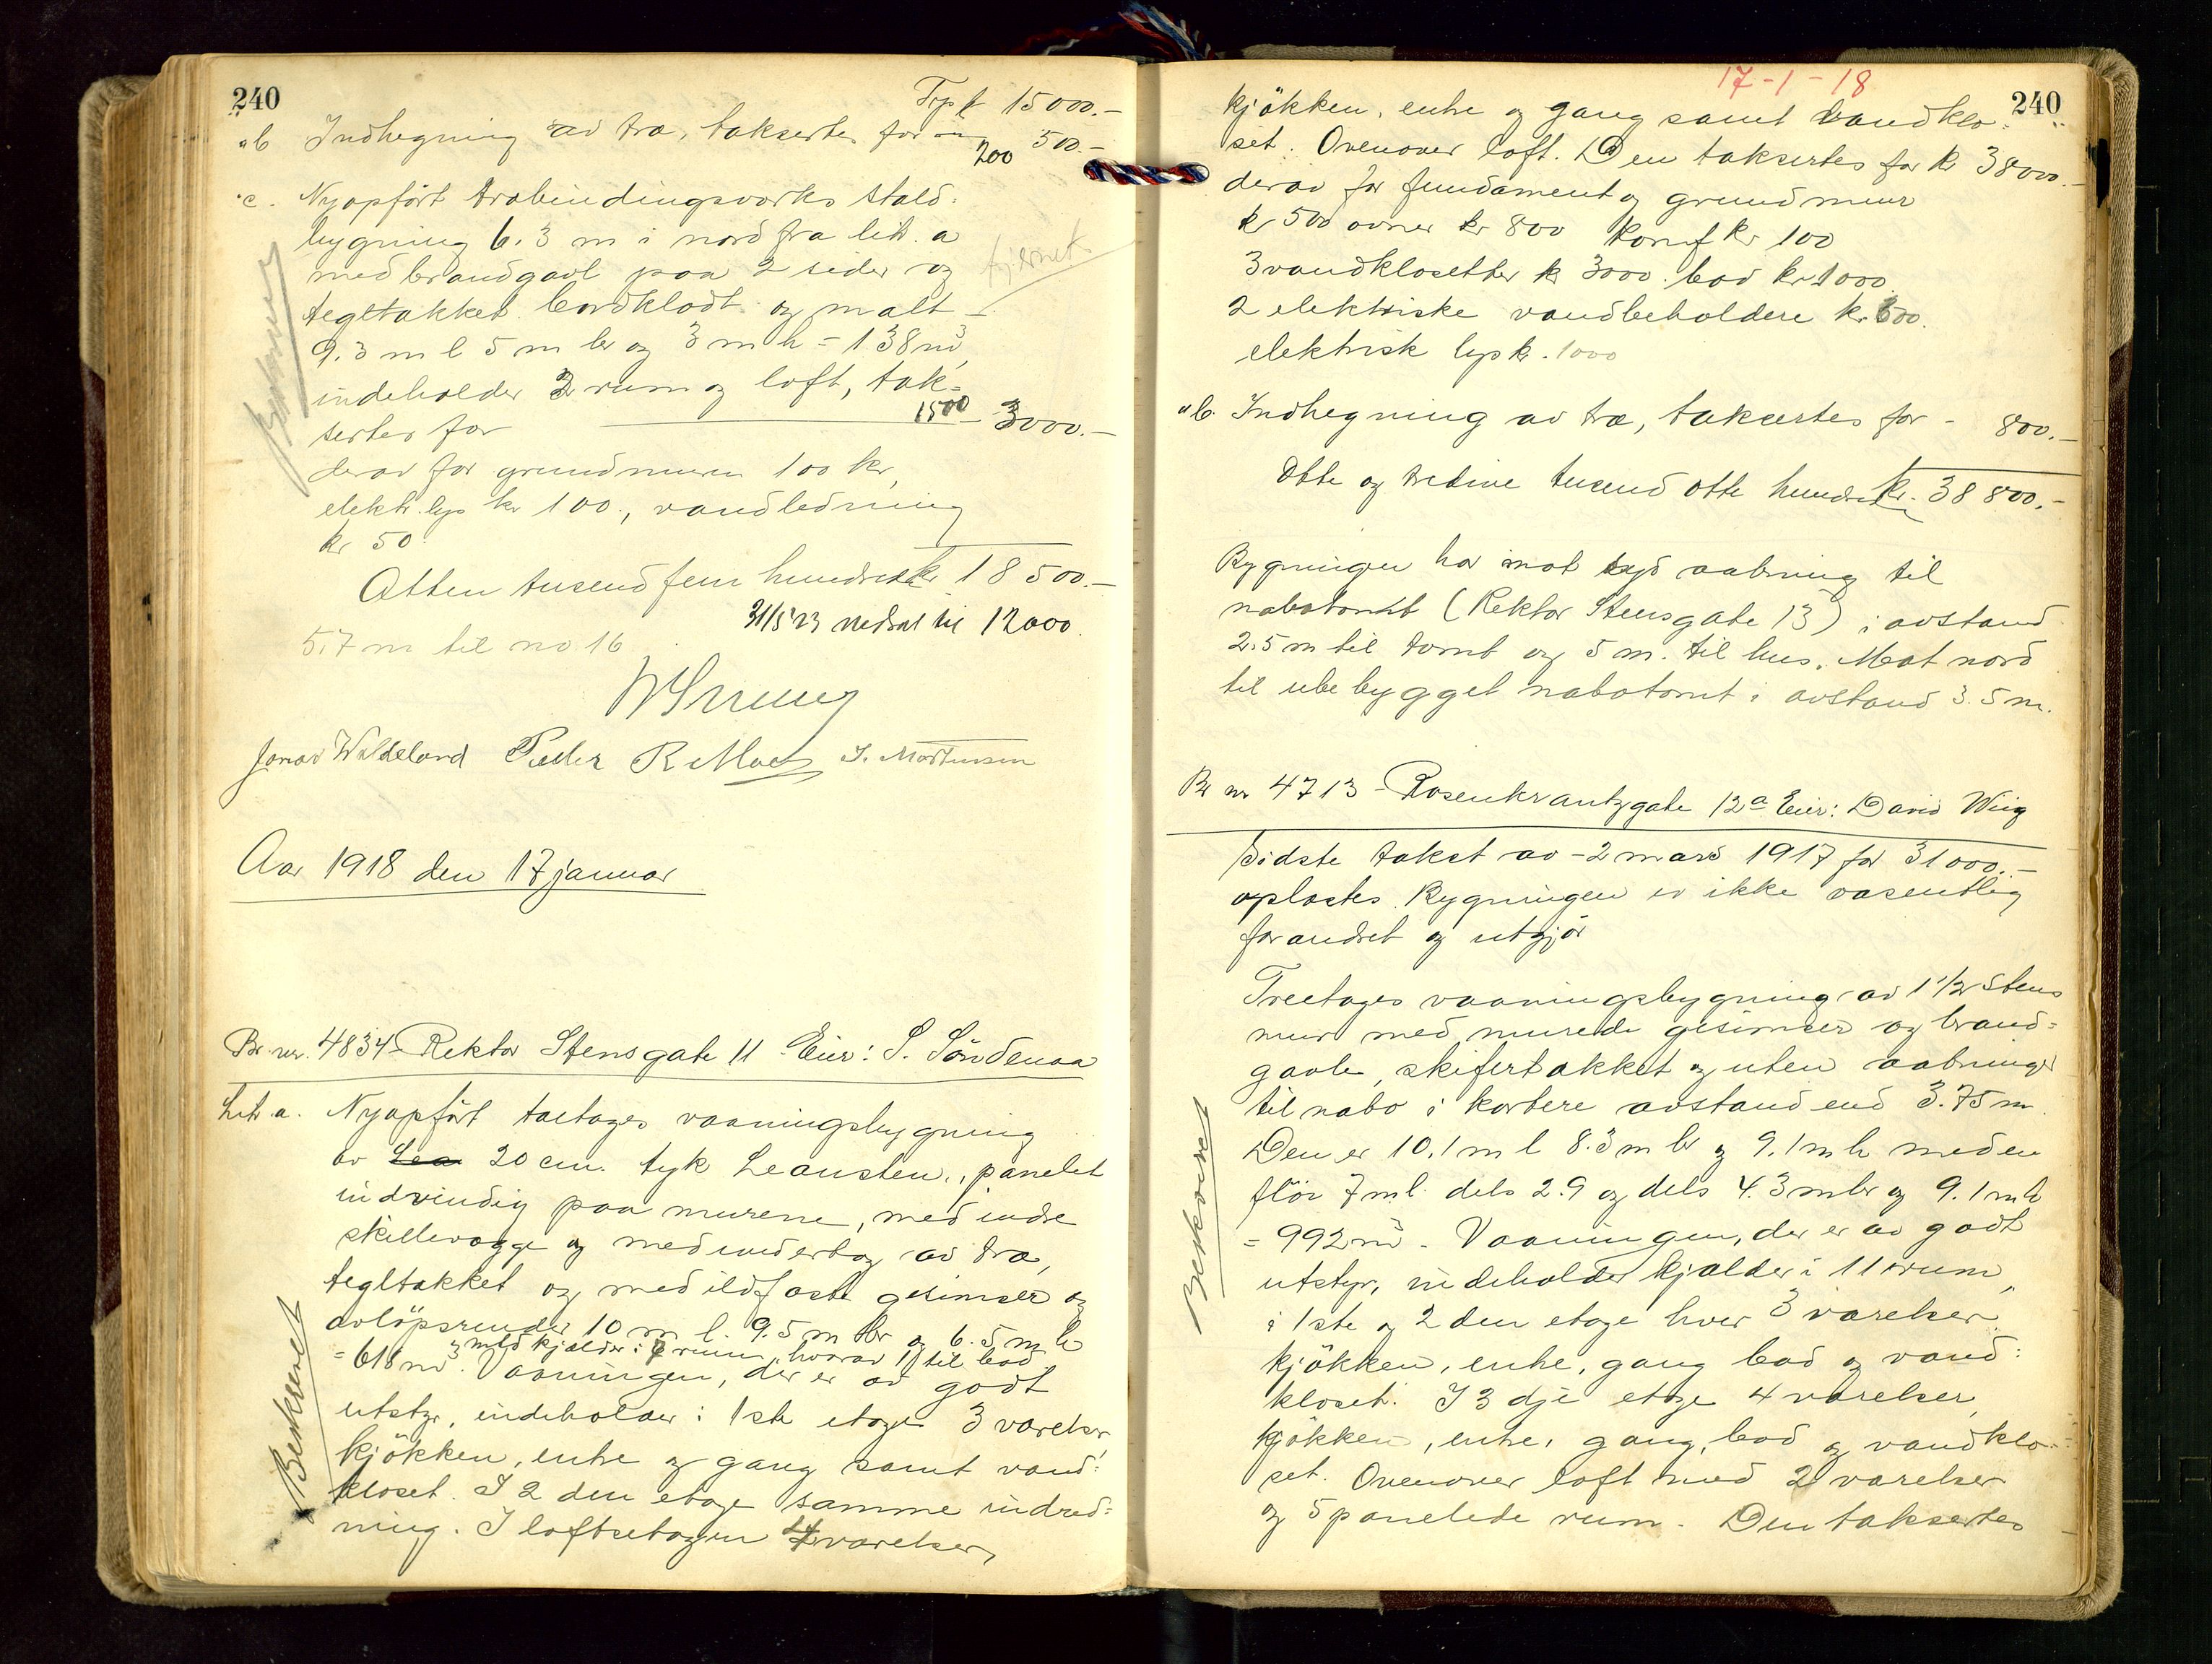 240
Trpt 15000.-
"b Indhegning av træ, taksertes for - 500.-
200
"c. Nyopført træbindingsverks stald-
bygning 6.3 m i nord fra lit. a
med brandgavl paa 2 sider og
fjernet
tegltækket bordklædt og malt -
9.3 m l 5 m br og 3 m h = 138 m³,
indeholder 2 rum og loft, tak-
sertes for 1500 - 3000.-
derav for grundmuren 100 kr,
elektr. lys kr 100., vandledning
kr 50.
Beskrevet
Atten tusend fem hundrede kr 18500.-
31/5 23 nedsat til 12000.
5.7 m til no 16
Jonas Waldeland Peder R Moe J. Mortensen
Aar 1918 den 17 januar
Br. nr. 4834 - Rektor Stensgate 11 Eier: S. Søndenaa
Lit. a. Nyopført toetages vaaningsbygning
av Lea 20 cm. tyk Leansten, panelet
indvendig paa murene, med indre
skillevægge og med undertag av træ,
tegltækket og med ildfaste gesimser og
avløpsrender 10 m l. 9.5 m br og 6.5 m h
og med kjælder i 7 rum, hvorav 1 til bad
= 618 m³. Vaaningen, der er av godt
utstyr, indeholder i 1ste etage 3 værelser,
kjøkken, entre og gang samt vand-
kloset. I 2 den etage samme indred-
ning. I loftsetagen 4 værelser,
Beskrevet
17-1-18
240
kjøkken, entre og gang samt vandklo-
set. Ovenover loft. Den taksertes for kr 38000.-
derav for fundament og grundmur
kr 500 ovner kr 800 komf kr 100
3 vandklosetter kr 3000. bad kr 1000.
2 elektriske vandbeholdere kr. 600.
elektrisk lys kr. 1000
"b. Indhegning av træ, taksertes for - 800.-
Otte og tredive tusend otte hundrede kr. 38800.-
Bygningen har mot syd aabning til
nabotomt (Rektor Stensgate 13) i avstand
2.5 m til tomt og 5 m. til hus. Mot nord
til ubebygget nabotomt i avstand 3.5 m.
Br nr 4713 - Rosenkrantzgate 12a Eier: David Wiig
Sidste takst av - 2 mars 1917 for 31000.-
oplæstes. Bygningen er ikke væsentlig
forandret og utgjør
Treetages vaaningsbygning av 1 1/2 stens
mur med murede gesimser og brand-
gavle, skifertækket og uten aabninger
til nabo i kortere avstand end 3.75 m.
Den er 10.1 m l 8.3 m br og 9.1 m h med en
fløi 7 m l. dels 2.9 og dels 4.3 m br og 9.1 m h
= 992 m³. Vaaningen, der er av godt
utstyr, indeholder kjælder i 11 rum,
i 1ste og 2 den etage hver 3 værelser
kjøkken, entre, gang bad og vand-
kloset. I 3 dje etage 4 værelser,
kjøkken, entre, gang, bad og vandklo-
set. Ovenover loft med 2 værelser
og 5 panelede rum. Den taksertes
Beskrevet